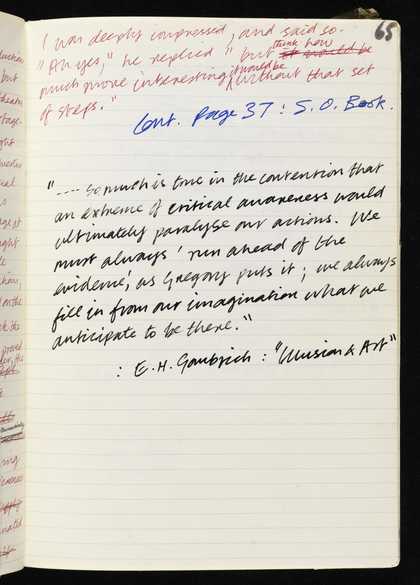 65
I was deeply impressed, and said so.
"Ah yes," he replied "but think how
much more interesting it would be without that set
of steps."
Cont. Page 37 : S.O. Book.
"---- So much is true in the contention that
an extreme of critical awareness would
ultimately paralyse our actions. We
must always 'run ahead of the
evidence', as Gregory puts it; we always
fill in from our imagination what we
anticipate to be there."
: E.H. Gombrich : "Illusion & Art"